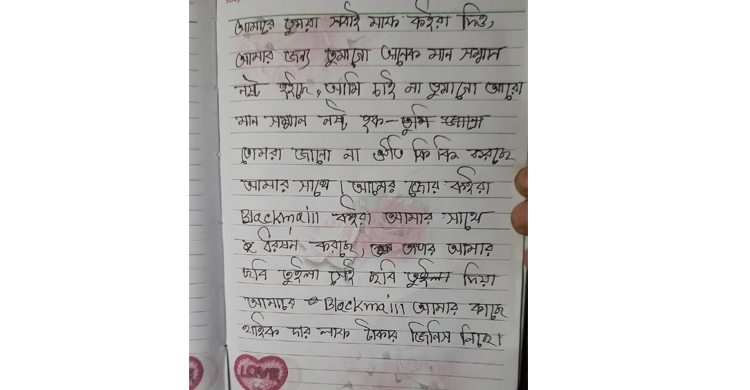 আমারে তুমরা সবাই মাফ কইরা দিও,
আমার জন্য তুমাগো অনেক মান সম্মান
নষ্ট হইছে, আমি চাই না তুমাগো আরো
মান সম্মান নষ্ট হক- তুমি জানো
তোমরা জানো না কি কি করছে
আমার সাথে। আমারে জোর কইরা
Blackmaill কইরা আমার সাথে
করছে, আমার
ছবি তুইলা সেই ছবি তুইলা দিয়া
আমারে Blackmaill আমার কাছে
থাইক চার লাক টাকার জিনিস নিছে।
LOVE